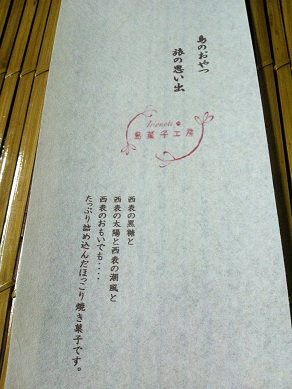 島のおやつ
旅の思い出
島菓子工房
西表の黒糖と
西表の太陽と西表の潮風と
西表のおもいでも・・・・
たっぷり詰め込んだほっこり焼き菓子です。